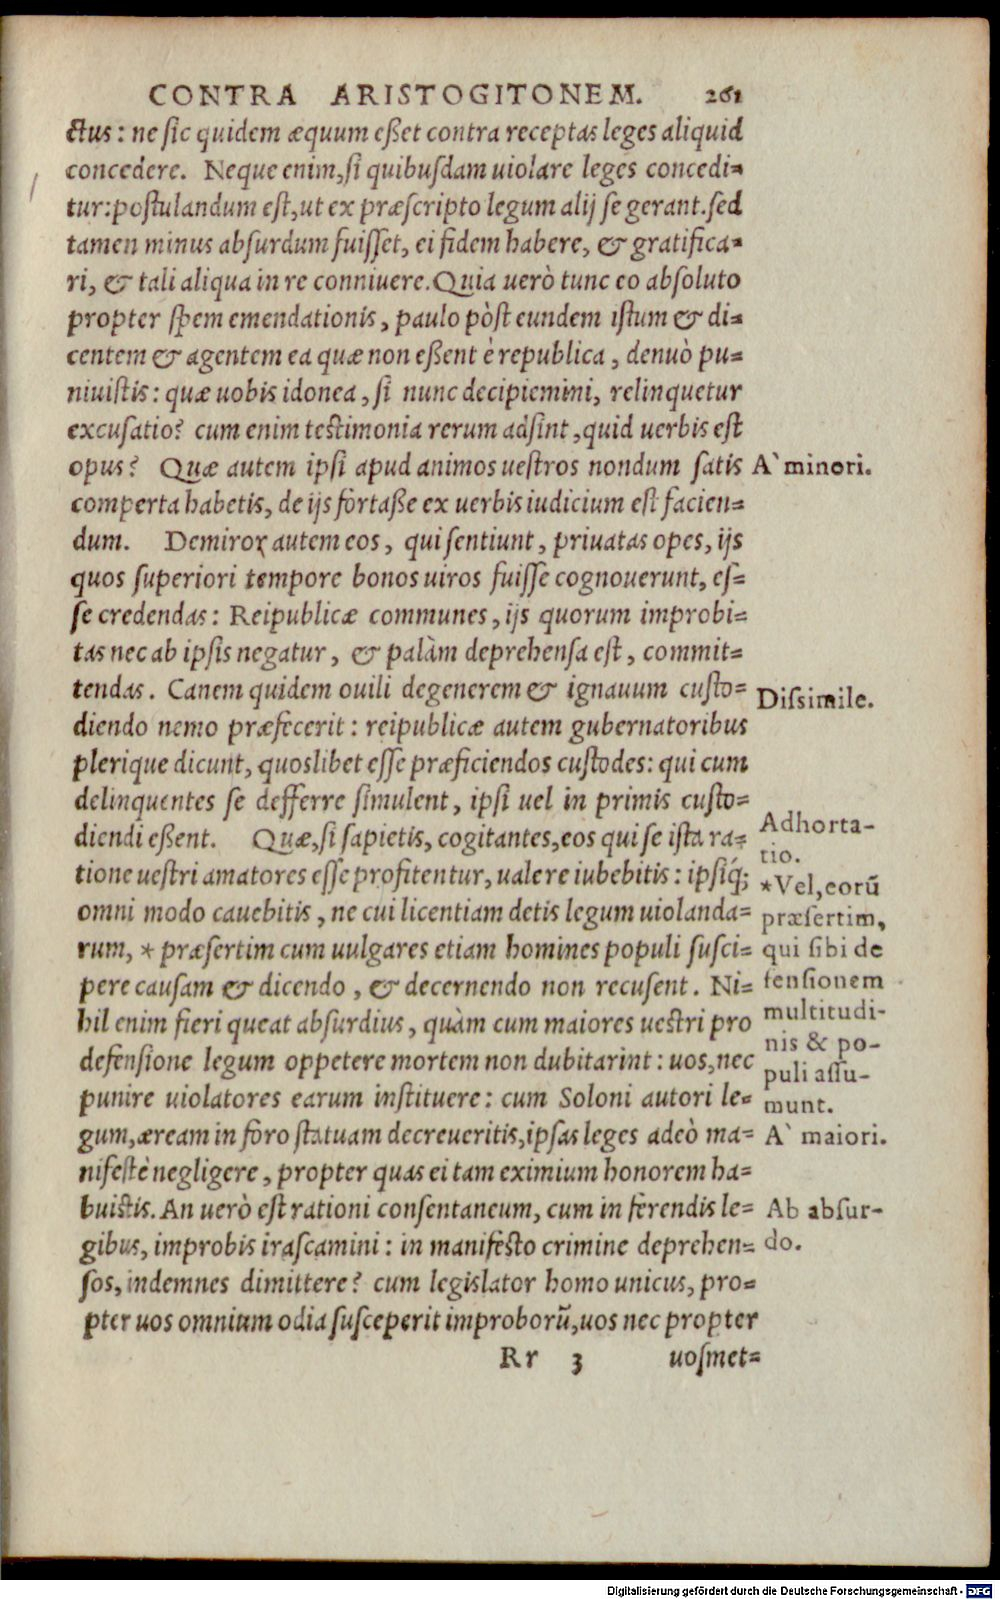 CONTRA ARISTOGITONEM. 261
ctus: ne sic quidem æquum eßet contra receptas leges aliquid
concedere. Neque enim, si quibusdam uiolare leges concedi=
tur: postulandum est, ut ex præscripto legum alij se gerant. sed
tamen minus absurdum fuisset, ei fidem habere, & gratifica=
ri, & tali aliqua in re conniuere. Quia uerò tunc eo absoluto
propter spem emendationis, paulo pòst eundem istum & di=
centem & agentem ea quæ non eßent è republica, denuò pu=
niuistis: quæ uobis idonea, si nunc decipiemini, relinquetur
excusatio? cum enim testimonia rerum adsint, quid uerbis est
opus? Quæ autem ipsi apud animos uestros nondum satis
A` minori.
comperta habetis, de ijs fortaße ex uerbis iudicium est facien=
dum. Demiror autem eos, qui sentiunt, priuatas opes, ijs
quos superiori tempore bonos uiros fuisse cognouerunt, es=
se credendas: Reipublicæ communes, ijs quorum improbi=
tas nec ab ipsis negatur, & palàm deprehensa est, commit=
tendas. Canem quidem ouili degenerem & ignauum custo=
Dissimile.
diendo nemo præfecerit: reipublicæ autem gubernatoribus
plerique dicunt, quoslibet esse præficiendos custodes: qui cum
delinquentes se defferre simulent, ipsi uel in primis custo=
diendi eßent. Quæ, si sapietis, cogitantes, eos qui se ista ra=
Adhorta-
tio.
tione uestri amatores esse profitentur, ualere iubebitis: ipsiq́;
omni modo cauebitis, ne cui licentiam detis legum uiolanda=
rum, * præsertim cum uulgares etiam homines populi susci=
pere causam & dicendo, & decernendo non recusent. Ni=
*Vel, eorũ
præsertim,
qui sibi de
fensionem
multitudi-
nis & po-
puli assu-
munt.
hil enim fieri queat absurdius, quàm cum maiores uestri pro
defensione legum oppetere mortem non dubitarint: uos, nec
punire uiolatores earum instituere: cum Soloni autori le=
gum, æream in foro statuam decreueritis, ipsas leges adeò ma=
A` maiori.
nifestè negligere, propter quas ei tam eximium honorem ha=
buistis. An uerò est rationi consentaneum, cum in ferendis le=
Ab absur-
do.
gibus, improbis irascamini: in manifesto crimine deprehen=
sos, indemnes dimittere? cum legislator homo unicus, pro=
pter uos omnium odia susceperit improborũ, uos nec propter
Rr 3 uosmet=
Digitalisierung gefördert durch die Deutsche Forschungsgemeinschaft - DFG